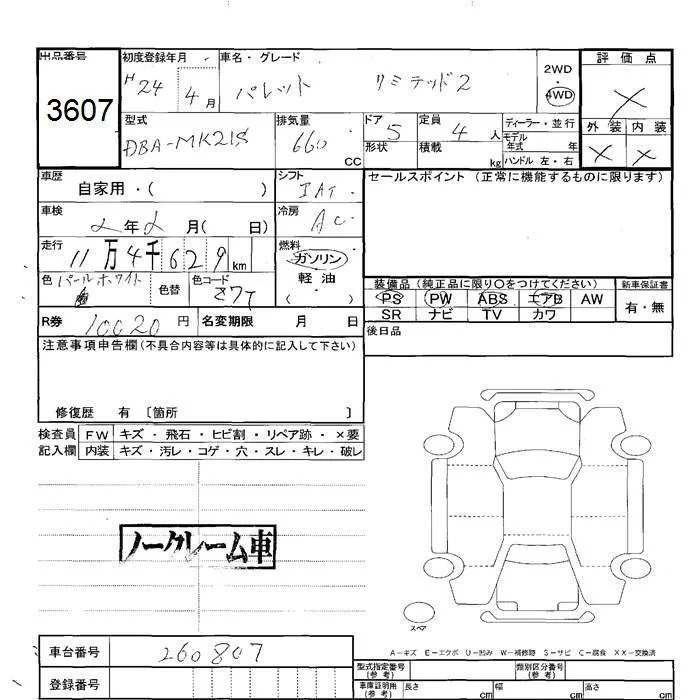 出品番号 初度登録年月 車名・グレード 評価点
3607 H24 4月 パレット リミテッド2 2WD 4WD
型式 DBA-MK21S 排気量 660 CC ドア 5 定員 4 人 ディーラー・並行 外装 内装
形状 積載 kg モデル年式 年 ハンドル 左・右
車歴 自家用・( ) シフト IAT セールスポイント (正常に機能するものに限ります)
車検 2年2月( 日) 冷房 AC
走行 11万4千629km 燃料 ガソリン
色 パールホワイト 色替 色コード Z7T 軽油 ( )
装備品 (純正品に限り〇をつけてください) 新車保証書
PS PW ABS エアB AW 有・無
SR ナビ TV カワ
R券 10020円 名変期限 月 日
後日品
注意事項申告欄(不具合内容等は具体的に記入して下さい)
修復歴 有 〔箇所 〕
検査員 FW キズ・飛石・ヒビ割・リペア跡・×要
記入欄 内装 キズ・汚レ・コゲ・穴・スレ・キレ・破レ
ノークレーム車
スペア
A-キズ E-エクボ U-凹み W-補修跡 S-サビ C-腐食 XX-交換済
車台番号 260807
型式指定番号 (参考) 類別区分番号 (参考)
登録番号
車庫証明用 (参考) 長さ cm 幅 cm 高さ cm